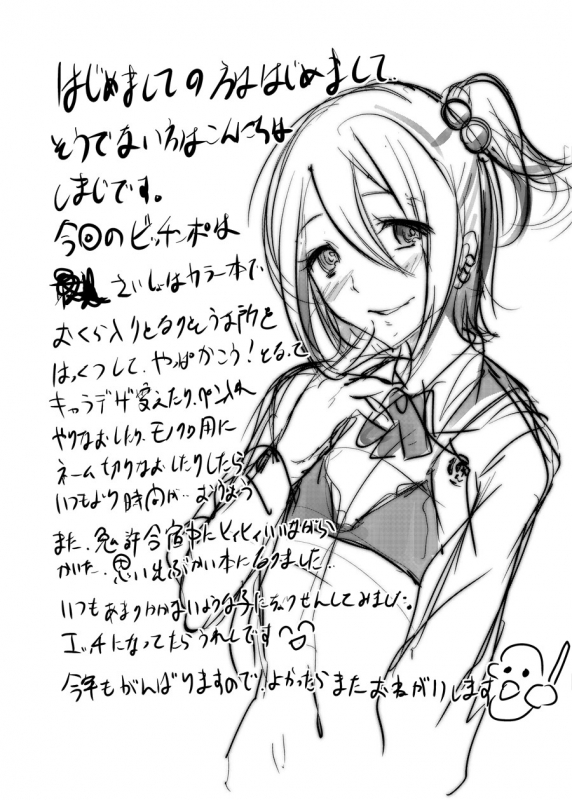 はじめましての方ははじめまして..
そうでない方はこんにちは
しまじです。
今回のビッチンポは
さいしょはカラー本で
おくら入りとなりそうな所を
はっくつして、やっぱかこう!となって
キャラデザ変えたり、ペン入れ
やりなおしたり、モノクロ用に
ネーム切りなおしたりしたら
いつもより時間が‥
また、免許合宿中にヒィヒィいいながら
かいた、思い出ぶかい本になりました…
いつもあまりかかないような子にちょうせんしてみました。
エッチになってたらうれしいです
今年もがんばりますので、よかったらまたおねがいします